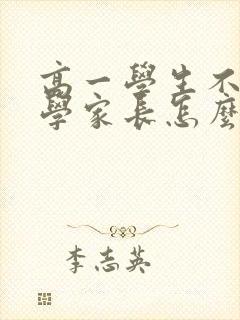 高一學生不
學家長怎麼
李志英